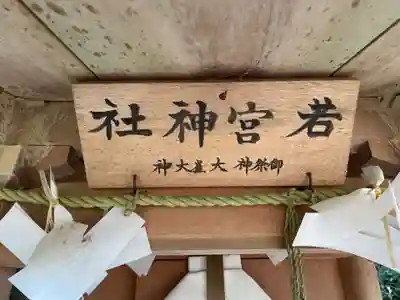 若宮神社
御祭神 大直大神